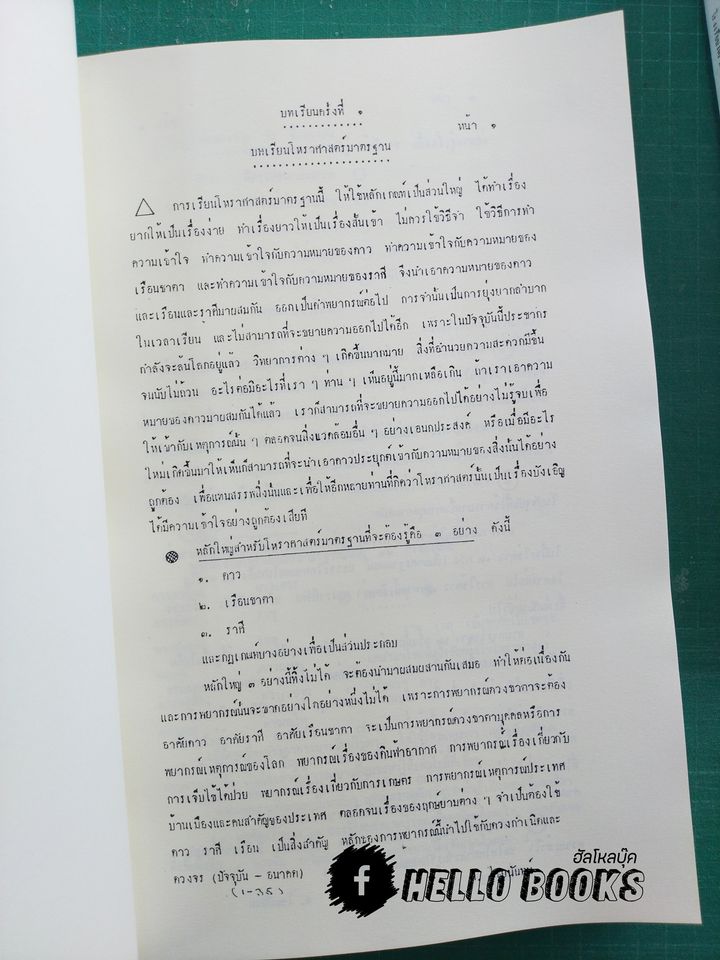 บทเรียนครั้งที่ ๑
หน้า ๑
บทเรียนโหราศาสตร์มาตรฐาน
การเรียนโหราศาสตร์มาตรฐานนี้ ให้ใช้หลักเกณฑ์เป็นส่วนใหญ่ ได้ทำเรื่อง
ยากให้เป็นเรื่องง่าย ทำเรื่องยาวให้เป็นเรื่องสั้นเข้า ไม่ควรใช้วิธีจำ ใช้วิธีการทำ
ความเข้าใจ ทำความเข้าใจกับความหมายของดาว ทำความเข้าใจกับความหมายของ
เรือนชาตา และทำความเข้าใจกับความหมายของราศี จึงนำเอาความหมายของดาว
และเรือนและราศีมาผสมกัน ออกเป็นคำพยากรณ์ต่อไป การจำนั้นเป็นการยุ่งยากลำบาก
ในเวลาเรียน และไม่สามารถที่จะขยายความออกไปได้อีก เพราะในปัจจุบันนี้ประชากร
กำลังจะล้นโลกอยู่แล้ว วิทยาการต่าง ๆ เกิดขึ้นมากมาย สิ่งที่อำนวยความสะดวกมีขึ้น
จนนับไม่ถ้วน อะไรต่อมิอะไรที่เรา ๆ ท่าน ๆ เห็นอยู่นี้มากเหลือเกิน ถ้าเราเอาความ
หมายของดาวมาผสมกันได้แล้ว เราก็สามารถที่จะขยายความออกไปได้อย่างไม่รู้จบเพื่อ
ให้เข้ากับเหตุการณ์นั้น ๆ ตลอดจนสิ่งแวดล้อมอื่น ๆ อย่างเอนกประสงค์ หรือเมื่อมีอะไร
ใหม่เกิดขึ้นมาให้เห็นก็สามารถที่จะนำเอาดาวประยุกต์เข้ากับความหมายของสิ่งนั้นได้อย่าง
ถูกต้อง เพื่อแทนสรรพสิ่งนั้นและเพื่อให้อีกหลายท่านที่คิดว่าโหราศาสตร์นั้นเป็นเรื่องบังเอิญ
ได้มีความเข้าใจอย่างถูกต้องเสียที
หลักใหญ่สำหรับโหราศาสตร์มาตรฐานที่จะต้องรู้คือ ๓ อย่าง ดังนี้
๑. ดาว
๒. เรือนชาตา
๓. ราศี
และกฎเกณฑ์บางอย่างเพื่อเป็นส่วนประกอบ
หลักใหญ่ ๓ อย่างนี้ทิ้งไม่ได้ จะต้องนำมาผสมผสานกันเสมอ ทำให้ต่อเนื่องกัน
และการพยากรณ์นั้นจะขาดอย่างใดอย่างหนึ่งไม่ได้ เพราะการพยากรณ์ดวงชาตาจะต้อง
อาศัยดาว อาศัยราศี อาศัยเรือนชาตา จะเป็นการพยากรณ์ดวงชาตาบุคคลหรือการ
พยากรณ์เหตุการณ์ของโลก พยากรณ์เรื่องของดินฟ้าอากาศ การพยากรณ์เรื่องเกี่ยวกับ
การเจ็บไข้ได้ป่วย พยากรณ์เรื่องเกี่ยวกับการเกษตร การพยากรณ์เหตุการณ์ประเทศ
บ้านเมืองและคนสำคัญของประเทศ ตลอดจนเรื่องของฤกษ์ยามต่าง ๆ จำเป็นต้องใช้
ดาว ราศี เรือน เป็นสิ่งสำคัญ หลักของการพยากรณ์นี้นำไปใช้กับดวงกำเนิดและ
ดวงจร (ปัจจุบัน - อนาคต)
ฮัลโหลบุ๊ค
f HELLO BOOKS